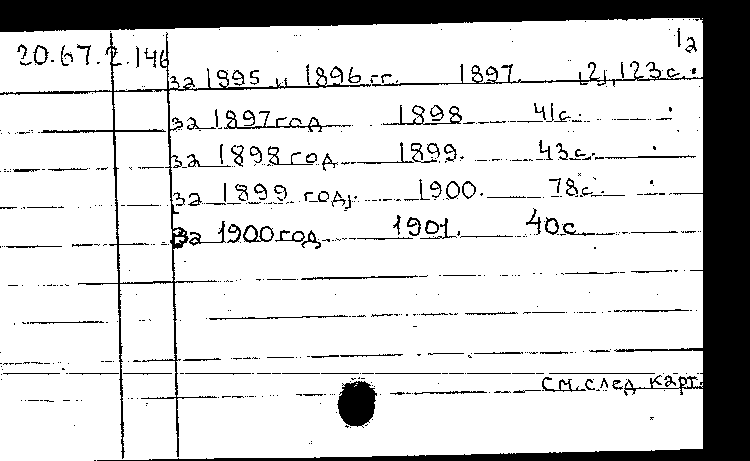 1а
20.67.2.146
за 1895 и 1896 гг. 1897. [2], 123 с.
за 1897 год 1898 41 с.
за 1898 год 1899. 43 с.
за 1899 год. 1900. 78 с.
за 1900 год 1901. 40 с
См. след. карт.